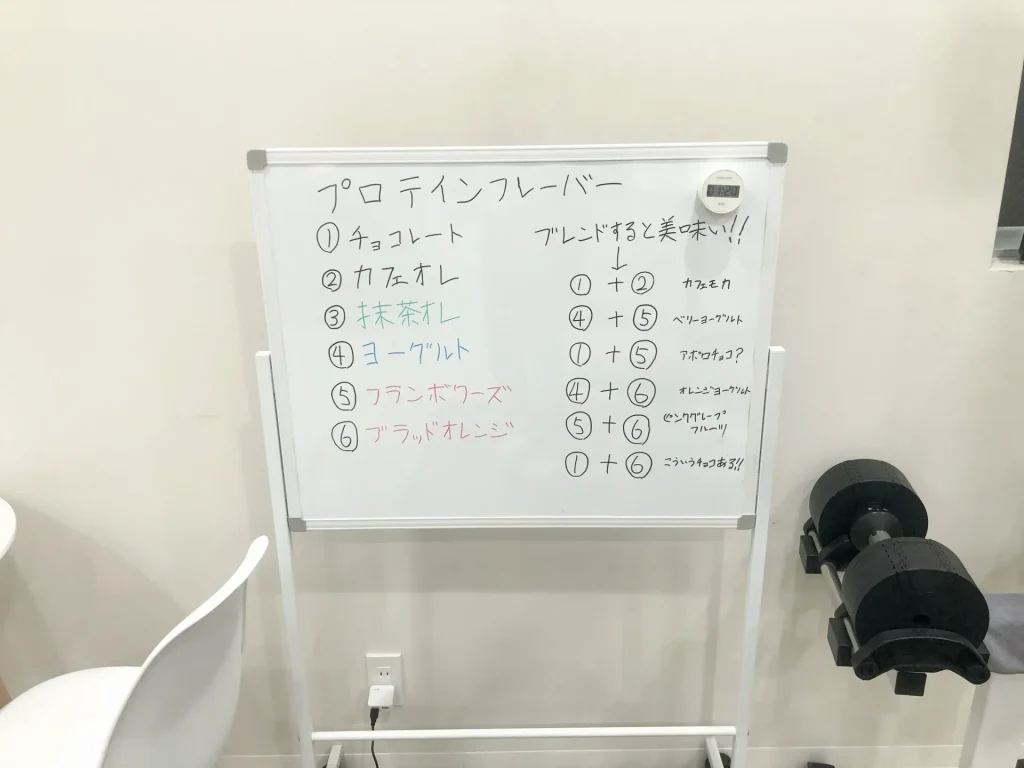 プロテインフレーバー
①チョコレート
②カフェオレ
③抹茶オレ
④ヨーグルト
⑤フランボワーズ
⑥ブラッドオレンジ
ブレンドすると美味い!!
↓
①+② カフェモカ
④+⑤ ベリーヨーグルト
①+⑤ アポロチョコ?
④+⑥ オレンジヨーグルト
⑤+⑥ ピンクグレープ
フルーツ
①+⑥ こういうチョコある!!